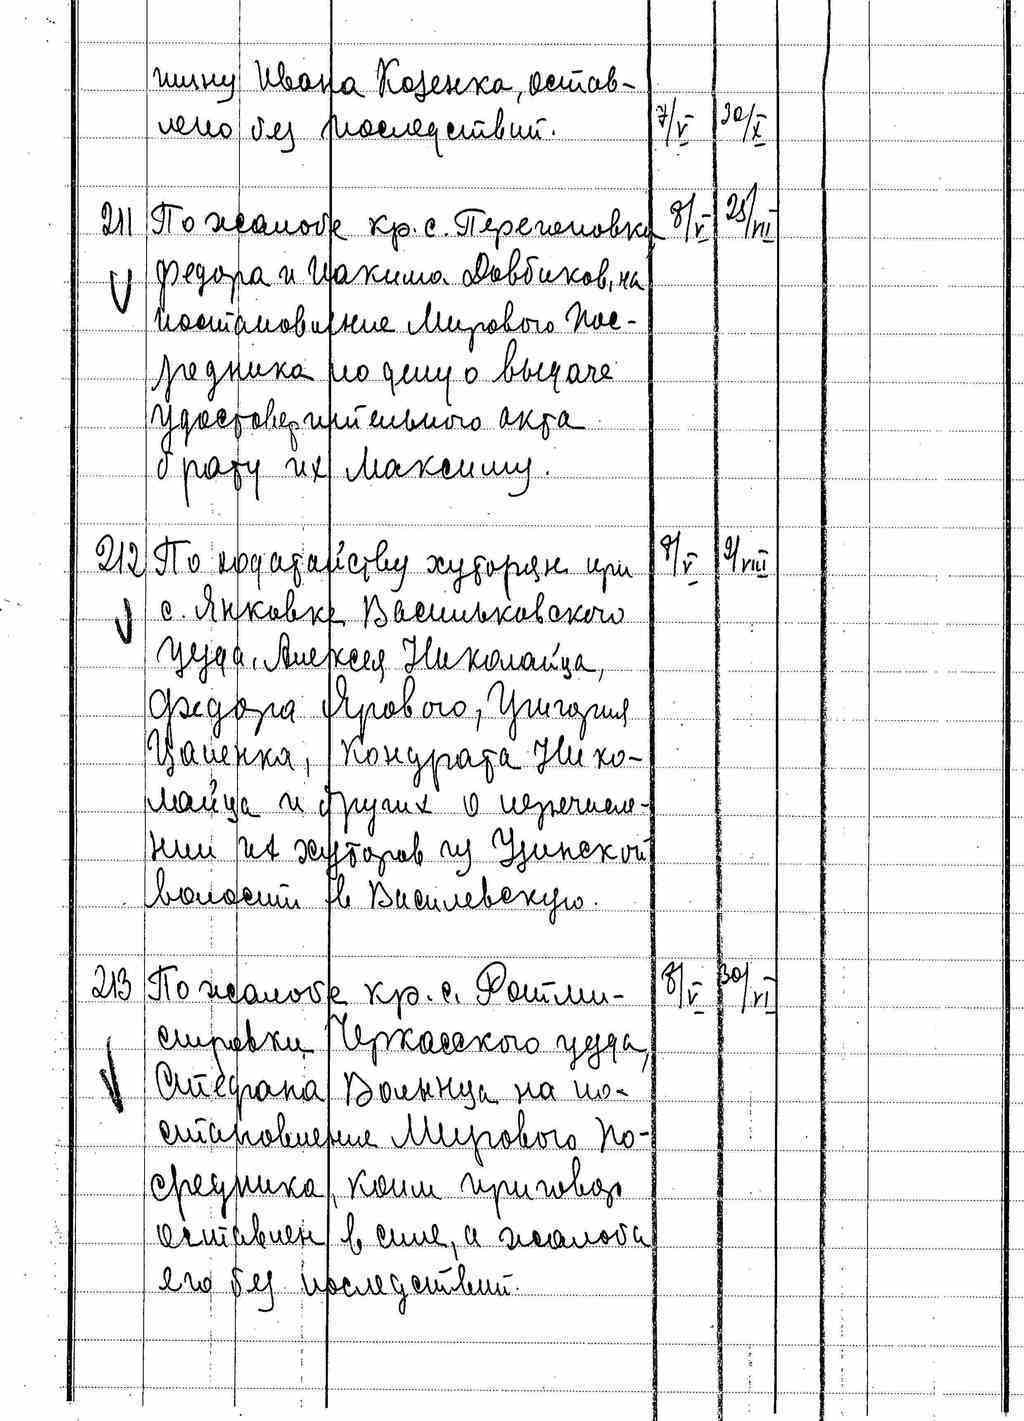 шину Ивана Козенка, остав-
лено без последствий. 7/V 30/X
211 По жалобе кр. с. Перегоновки 8/V 25/VII
Федора и Иакима Довбиков, на
постановление Мирового Пос-
редника по делу о выдаче
удостоверительного акта
брату их Максиму.
212 По ходатайству хуторян при 8/V 9/VIII
с. Янковке Васильковского
уезда, Алексея Николайца,
Федора Ярового, Григория
Цапенка, Кондрата Нико-
лайца и других о перечисле-
нии их хуторов из Узинской
волости в Василевскую.
213 По жалобе кр. с. Ротми- 8/V 30/VI
стровки, Черкасского уезда,
Стефана Волынца на по-
становление Мирового По-
средника, коим приговор
оставлен в силе, а жалоба
его без последствий.